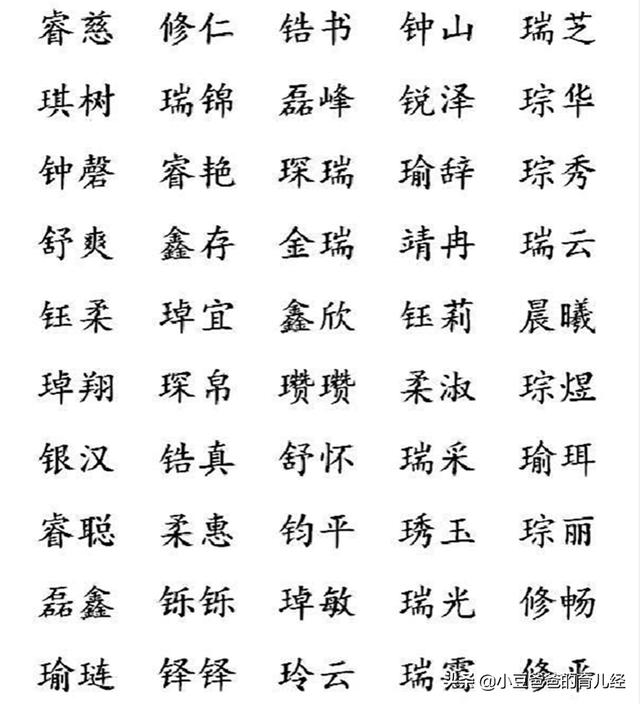 睿慈 修仁 锆书 钟山 瑞芝
琪树 瑞锦 磊峰 锐泽 琮华
钟磬 睿艳 琛瑞 瑜辞 琮秀
舒爽 鑫存 金瑞 靖冉 瑞云
钰柔 琸宜 鑫欣 钰莉 晨曦
琸翔 琛帛 瓒瓒 柔淑 琮煜
银汉 锆真 舒怀 瑞采 瑜珥
睿聪 柔惠 钧平 琇玉 琮丽
磊鑫 铄铄 琸敏 瑞光 修畅
瑜琏 铎铎 玲云 瑞霭 修平
头条 @小豆爸爸的育儿经